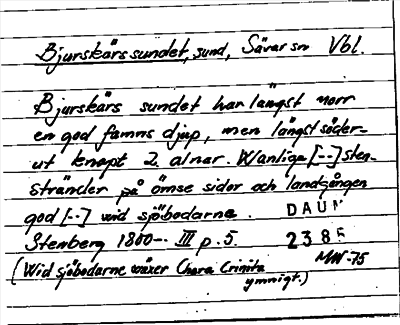 Bjurskärssundet, sund, Sävar sn Vbl.
Bjurskärs sundet har längst norr
en god famns djup, men längst söder-
ut knapt 2 alnar. Wanlige [--] sten-
stränder på ömse sidor och landgången
god [--] wid sjöbodarne. DAUM
Stenberg 1800-. III p. 5. 2385
(Wid sjöbodarne wäxer Chara Crinita MW-75
ymnigt.)